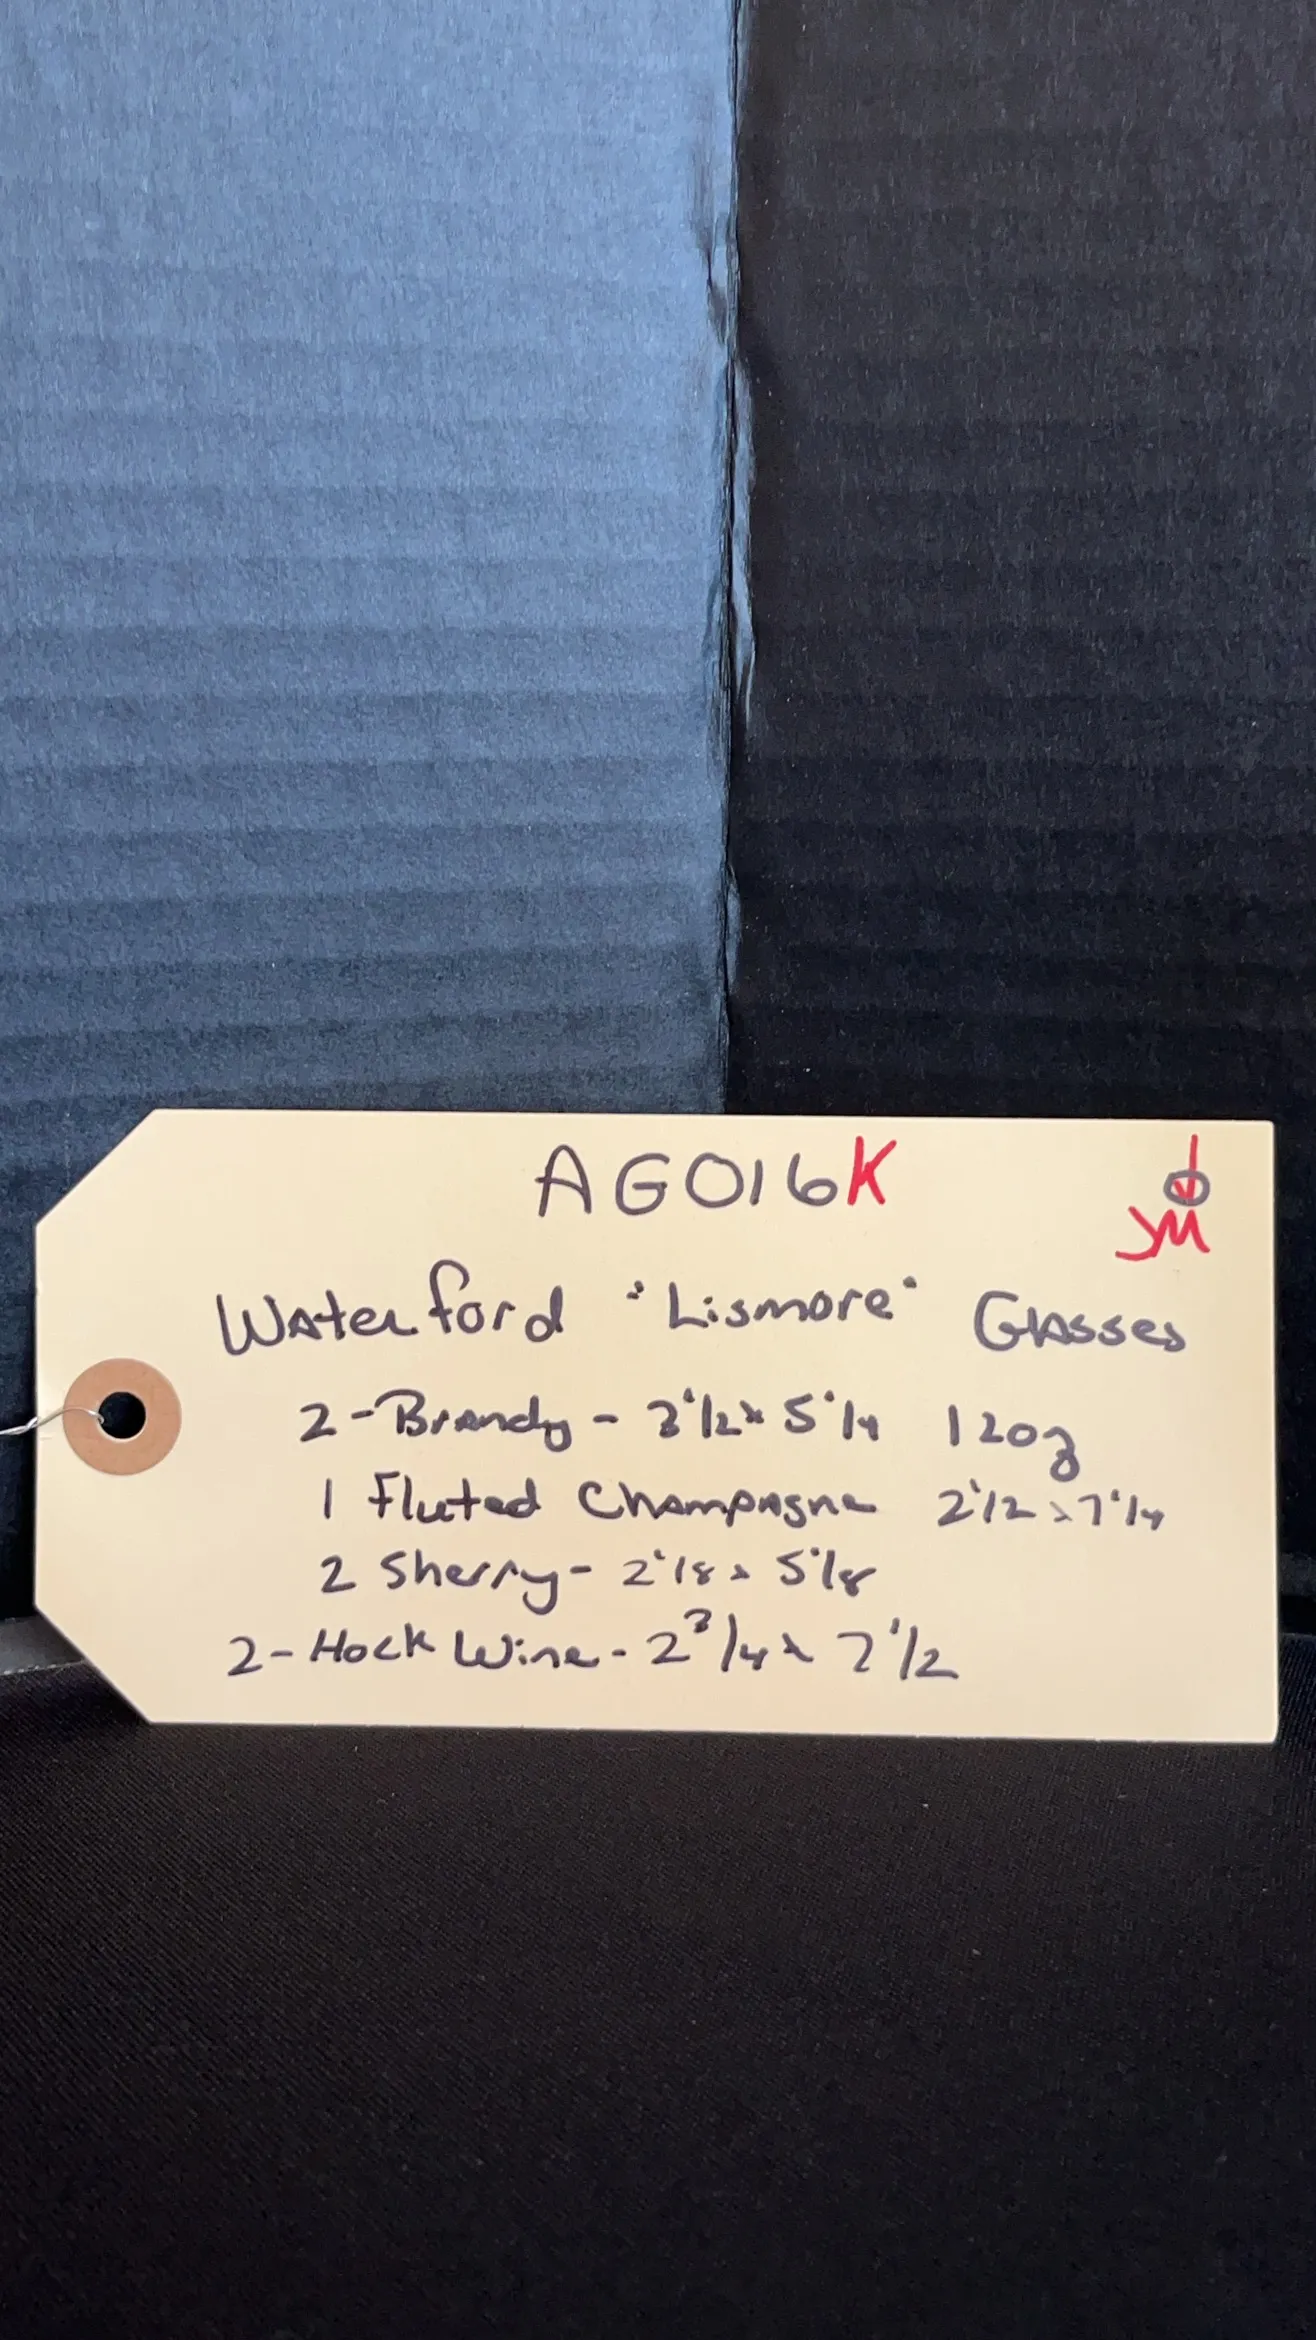 AG016K
JM
Waterford "Lismore" Glasses
2-Brandy - 3 1/2 x 5 1/4 12oz
1 Fluted Champagne 2 1/2 x 7 1/4
2 Sherry - 2 1/8 x 5 1/8
2-Hock Wine - 2 3/4 x 7 1/2